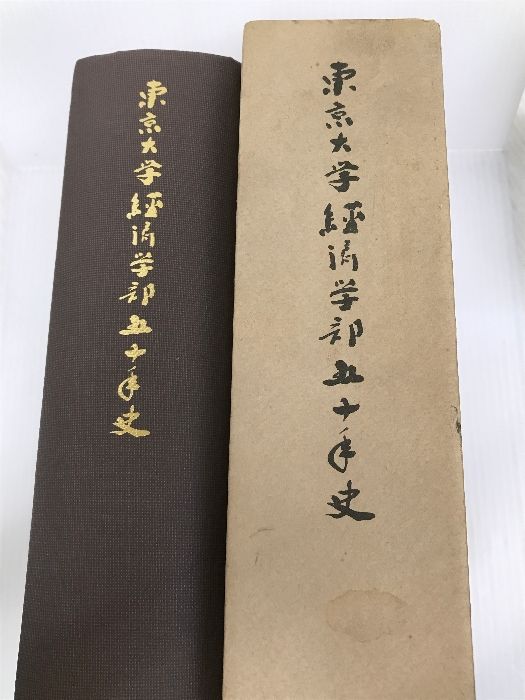 東京大学經済学部五十年史
東京大学經済学部五十年史